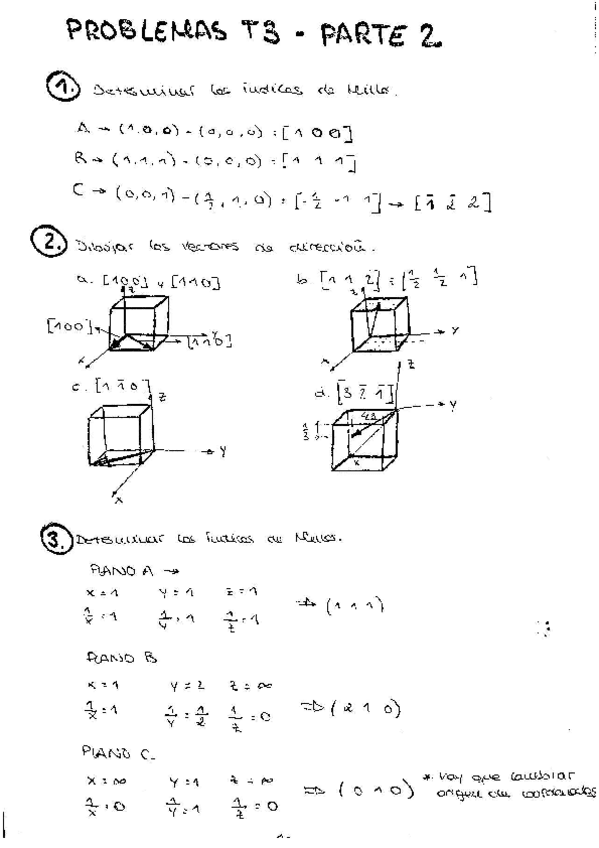 PROBLEMAS T3 - PARTE 2
1. Determinar los índices de Miller.
A → (1,0,0) - (0,0,0) = [1 0 0]
B → (1,1,1) - (0,0,0) = [1 1 1]
C → (0,0,1) - (1/2, 1, 0) = [-1/2 -1 1] → [1̄ 2̄ 2]
2. Dibujar los vectores de dirección.
a. [100] y [110]
b. [1 1 2] = [1/2 1/2 1]
z
z
[100]
y
[110]
x
y
x
c. [1 1̄ 0]
z
y
x
d. [3̄ 2̄ 1̄]
z
y
x
3. Determinar los índices de Miller.
PLANO A →
x = 1 y = 1 z = 1
1/x = 1 1/y = 1 1/z = 1 ⇒ (1 1 1)
PLANO B
x = 1 y = 2 z = ∞
1/x = 1 1/y = 1/2 1/z = 0 ⇒ (2 1 0)
PLANO C.
x = ∞ y = 1 z = ∞
1/x = 0 1/y = 1 1/z = 0 ⇒ (0 1 0)
* Hay que cambiar
origen de coordenadas